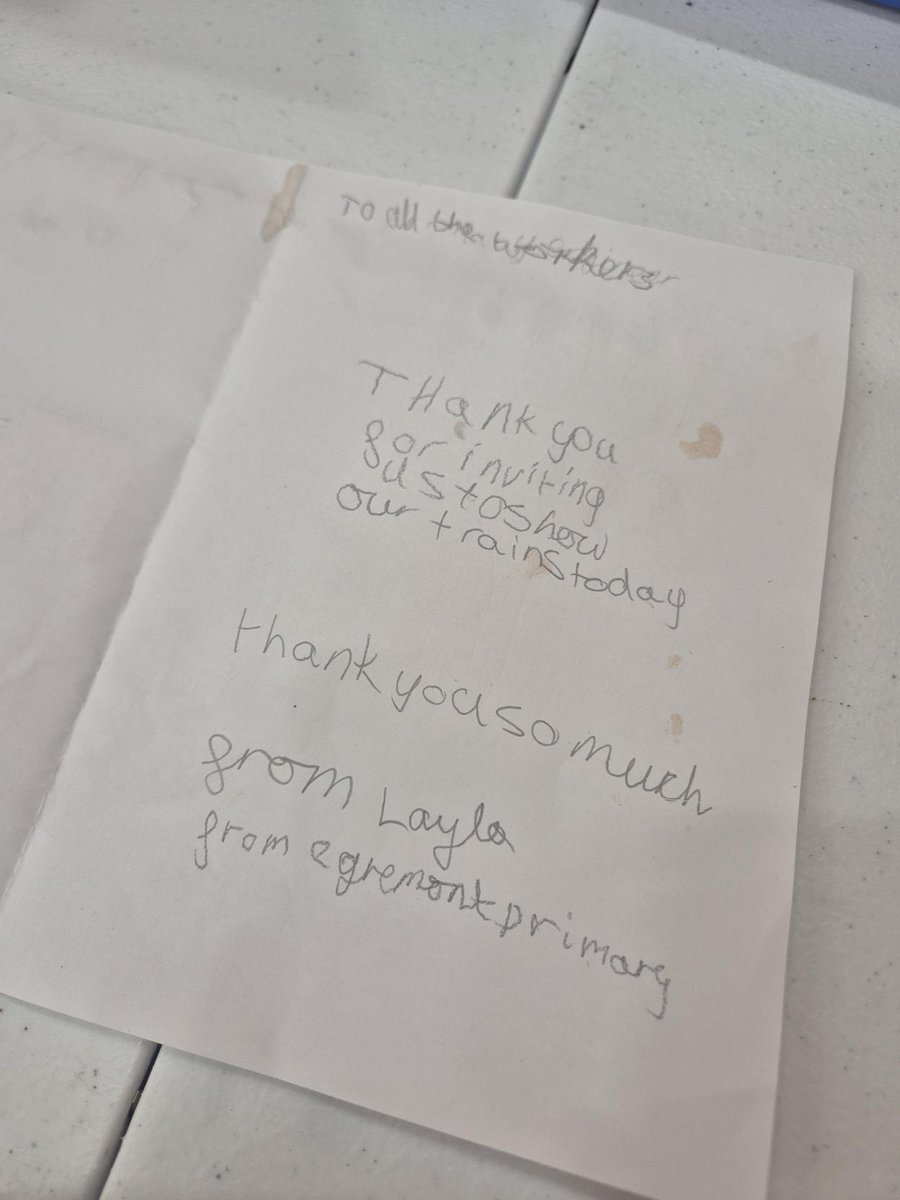 To all the workers
THank you
for inviting
us to show
our trains today
thank you so much
from Layla
from egremont primary